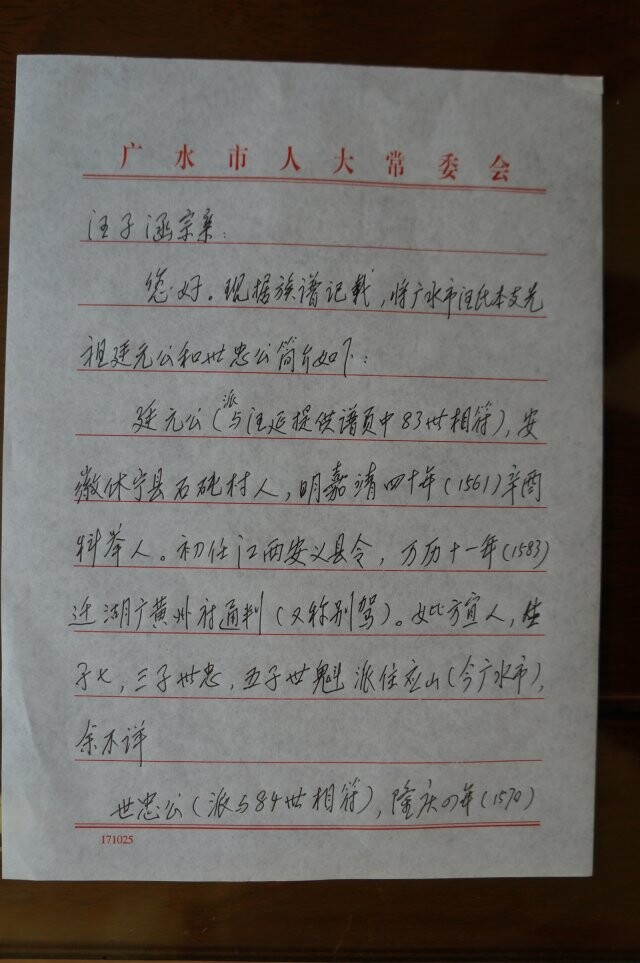 广水市人大常委会
汪子涵宗亲:
您好。现据族谱记载,将广水市汪氏本支先
祖廷元公和世忠公简介如下:
廷元公(派与汪延提供谱页中83世相符),安
徽休宁县石砘村人,明嘉靖四十年(1561)辛酉
科举人。初任江西安义县令,万历十一年(1583)
迁湖广黄州府通判(又称别驾)。妣方宜人,生
子七,三子世忠,五子世魁派住应山(今广水市),
余不详
世忠公(派与84世相符),隆庆四年(1570)
171025